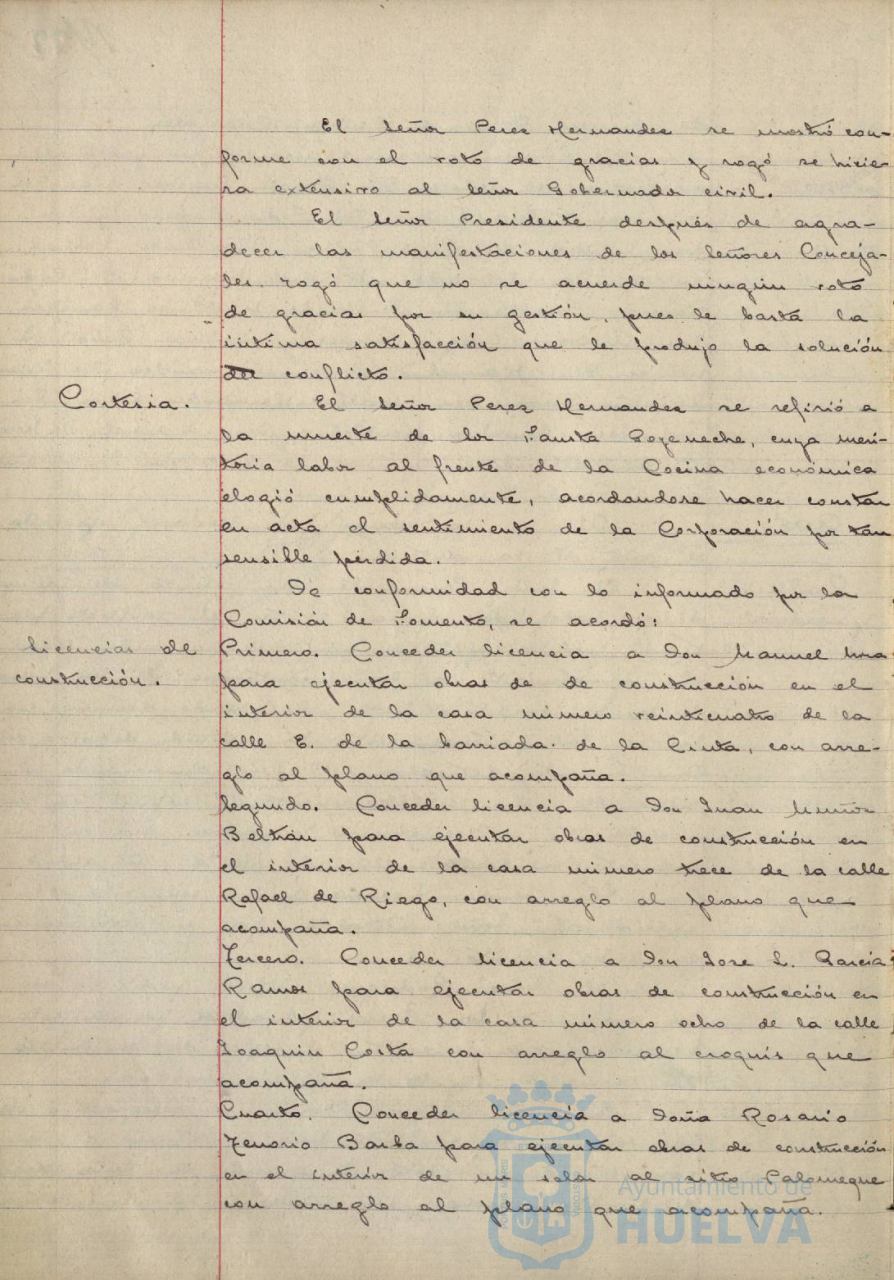 El Señor Perez Hernandez se mostró con-
forme con el voto de gracias y rogó se hicie-
ra extensivo al Señor Gobernador civil.
El Señor Presidente después de agra-
decer las manifestaciones de los Señores Conceja-
les rogó que no se acuerde ningún voto
de gracias por su gestión, pues le basta la
intima satisfacción que le produjo la solución
del conflicto.
Cortesia.
El Señor Perez Hernandez se refirió a
la muerte de Sor Fausta Goyeneche, cuya meri-
toria labor al frente de la Cocina económica
elogió cumplidamente, acordandose hacer constar
en acta el sentimiento de la Corporación por tan
sensible pérdida.
De conformidad con lo informado por la
Comisión de Fomento, se acordó:
Licencias de
construcción.
Primero. Conceder licencia a Don Manuel
para ejecutar obras de de construcción en el
interior de la casa número veinticuatro de la
calle E. de la barriada de la Cinta, con arre-
glo al plano que acompaña.
Segundo. Conceder licencia a Don Juan Muñoz
Beltrán para ejecutar obras de construcción en
el interior de la casa número trece de la calle
Rafael de Riego, con arreglo al plano que
acompaña.
Tercero. Conceder licencia a Don Jose L. García
Ramos para ejecutar obras de construcción en
el interior de la casa número ocho de la calle
Joaquin Costa con arreglo al croquis que
acompaña.
Cuarto. Conceder licencia a Doña Rosario
Tenorio Barba para ejecutar obras de construcción
en el interior de un solar al sitio Palomeque
con arreglo al plano que acompaña.
Ayuntamiento de
HUELVA